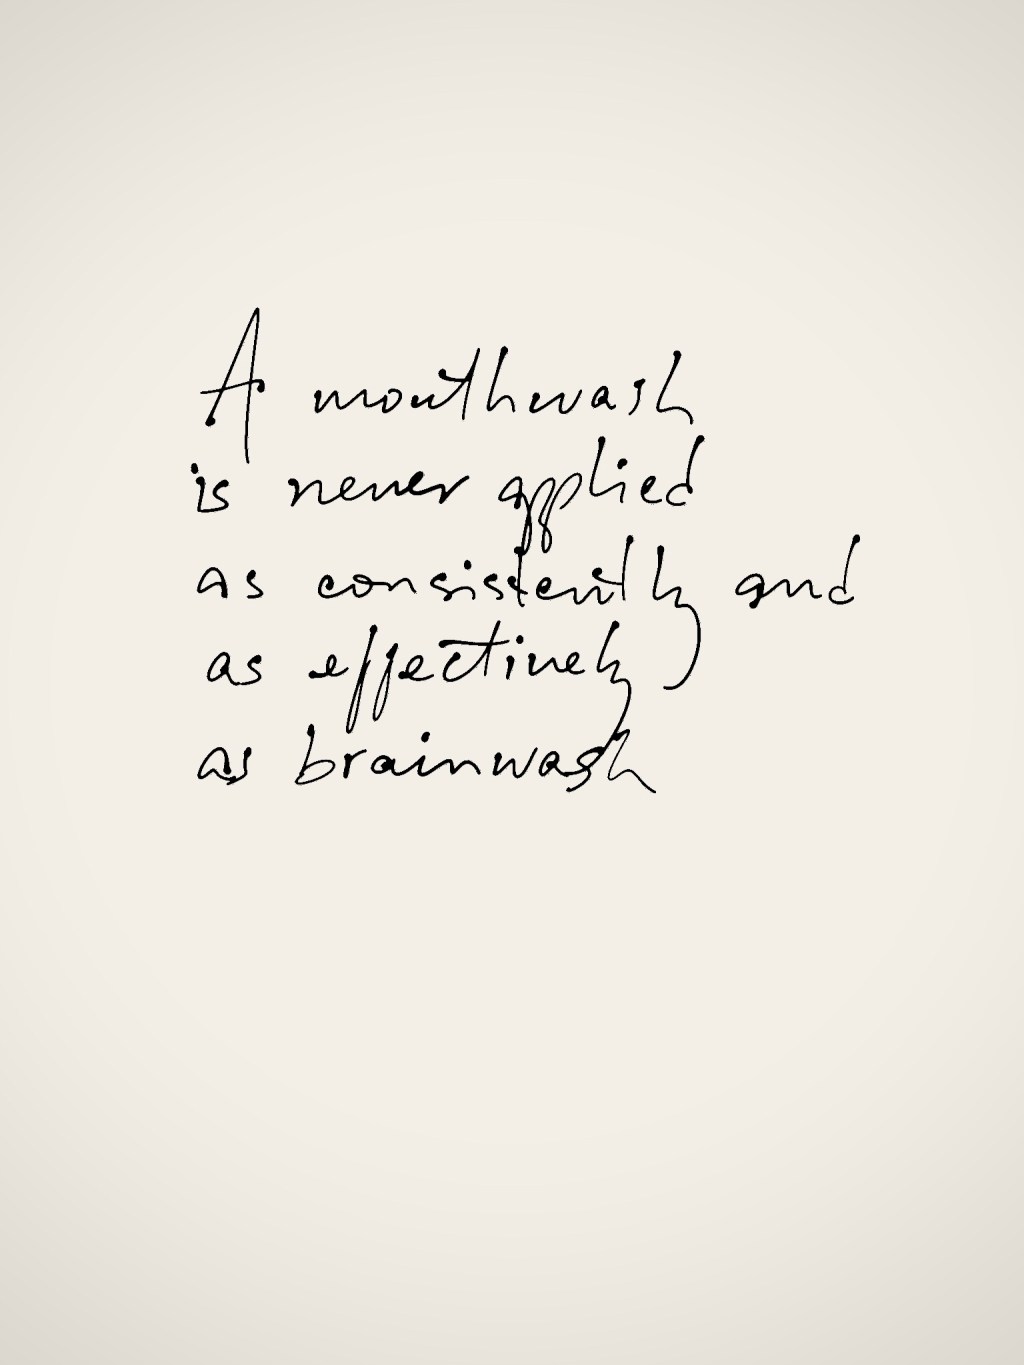 A mouthwash
is never applied
as consistently and
as effectively
as brainwash